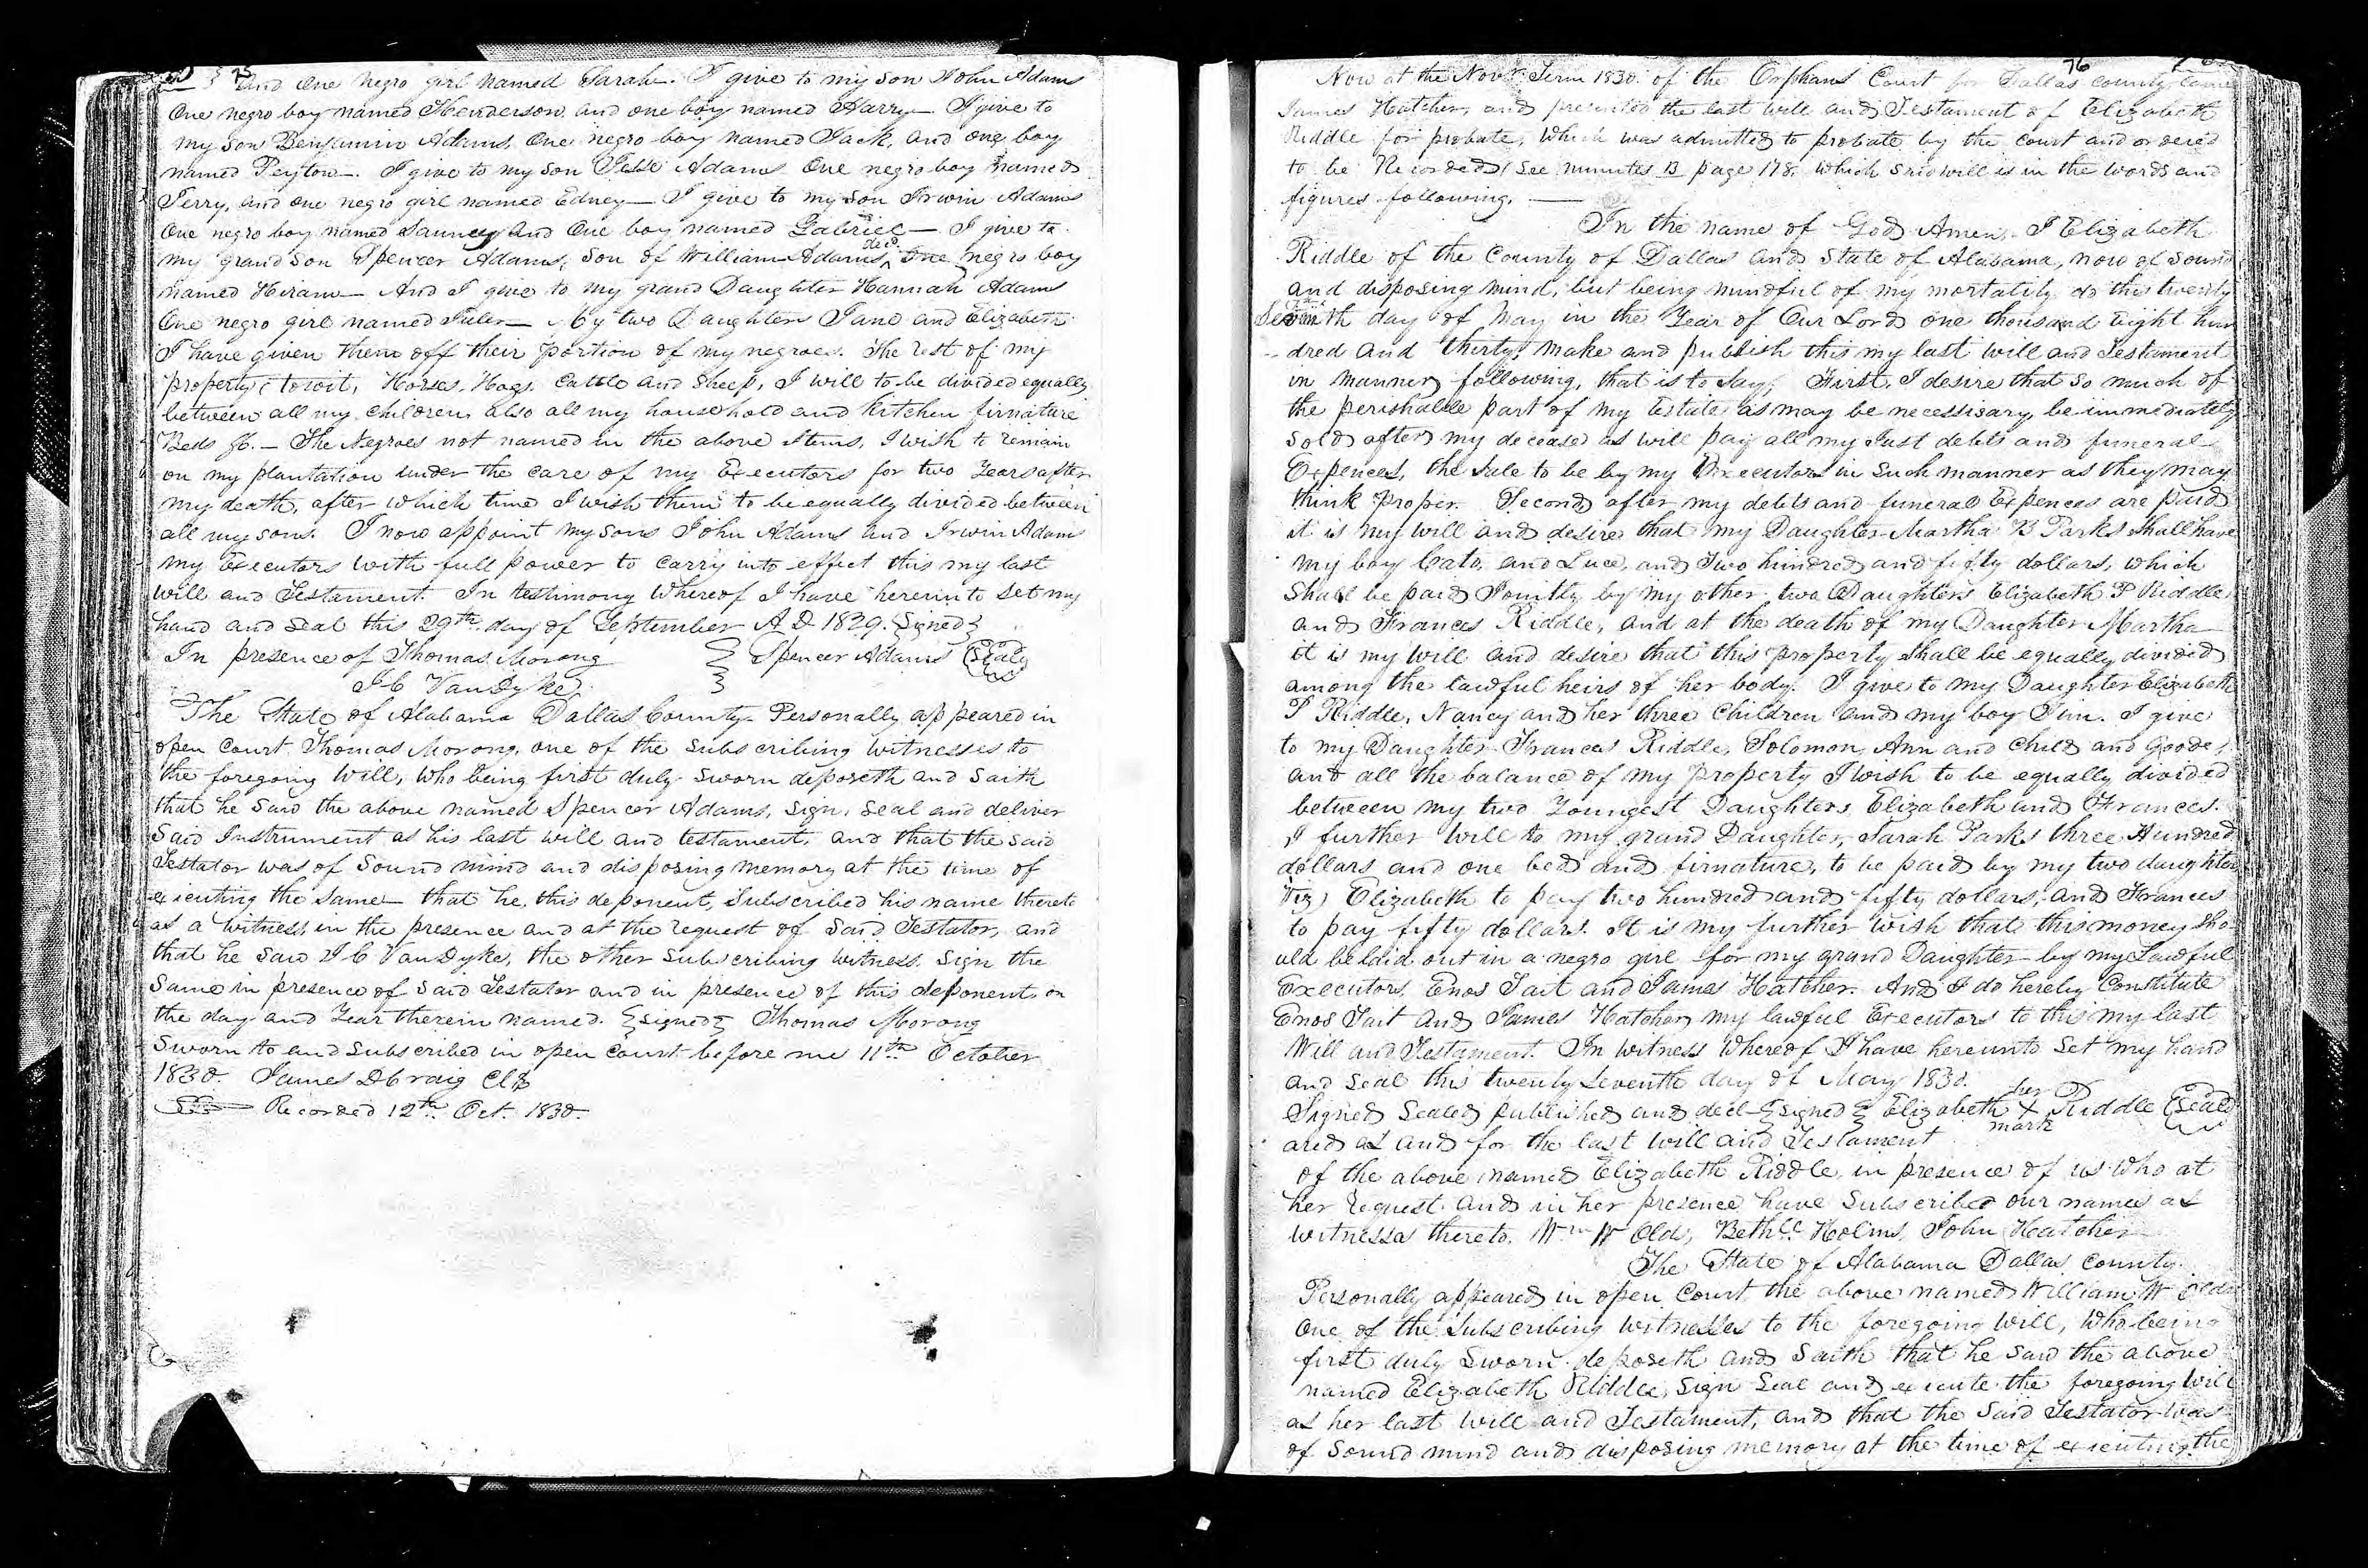 75
And One negro girl named Sarah. I give to my son John Adams
One negro boy named Henderson and one boy named Harry — I give to
my son Benjamin Adams, One negro boy named Jack, and one boy
named Peyton —. I give to my son Jesse Adams One negro boy named
Terry, and one negro girl named Edney — I give to my son Irwin Adams
One negro boy named and One boy named Gabriel — I give to
my grand son Spencer Adams, Son of William Adams, decd. One negro boy
named Hiram — And I give to my grand Daughter Hannah Adams
One negro girl named — My two Daughters Jane and Elizabeth
I have given them off their portion of my negroes. The rest of my
property (towit, Horses, Hogs, Cattle and Sheep, I will to be divided equally
between all my children, also all my household and kitchen firnature
Beds &c. — The Negroes not named in the above Items, I wish to remain
on my plantation under the care of my Executors for two Years after
my death, after which time I wish them to be equally divided between
all my sons. I now appoint my sons John Adams and Irwin Adams
my Executors with full power to carry into effect this my last
will and Testament. In testimony whereof I have hereunto set my
hand and seal this 29th day of September A D 1829. {Signed}
In presence of Thomas Morong } Spencer Adams (Seal)
J C VanDyke }
The State of Alabama Dallas County Personally appeared in
open court Thomas Morong, one of the subscribing witnesses to
the foregoing Will, who being first duly sworn deposeth and saith
that he saw the above named Spencer Adams, sign, seal and deliver
Said Instrument as his last will and testament, and that the said
Testator was of sound mind and disposing memory at the time of
executing the same — that he, this deponent, subscribed his name thereto
as a witness in the presence and at the request of said Testator, and
that he saw J C VanDyke, the other subscribing witness sign the
Same in presence of said Testator and in presence of this deponent, on
the day and Year therein named. {signed} Thomas Morong
Sworn to and subscribed in open court before me 11th October
1830. James D Craig Clk
Recorded 12th Oct. 1830.
76
Now at the Novr. Term 1830. of the Orphans Court for Dallas county came
James Hatcher, and presented the last will and Testament of Elizabeth
Riddle for probate, Which was admitted to probate by the court and ordered
to be Recorded, (see minutes B page 178, which said will is in the words and
figures following. —
In the name of God Amen, I Elizabeth
Riddle of the County of Dallas and State of Alabama, now of sound
and disposing mind, but being mindful of my mortality do this twenty
Seventh day of May in the Year of Our Lord one thousand Eight hun
-dred and thirty, make and publish this my last will and Testament
in manner following, that is to Say, First, I desire that so much of
the perishable part of my Estate as may be necessisary, be immediately
sold after my decease as will pay all my Just debts and funeral
Expences, the sale to be by my Executors in such manner as they may
think proper. Second after my debts and funeral Expences are paid
it is my will and desire that my Daughter Martha B Parks shall have
my boy Cato, and Luce, and Two hundred and fifty dollars, which
Shall be paid Jointly by my other two Daughters Elizabeth P Riddle
and Frances Riddle, and at the death of my Daughter Martha
it is my will and desire that this property shall be equally divided
among the lawful heirs of her body. I give to my Daughter Elizabeth
P Riddle, Nancy and her three Children and my boy Jim. I give
to my Daughter Frances Riddle, Solomon, Ann and child and Goode,
and all the balance of my property I wish to be equally divided
between my two Youngest Daughters Elizabeth and Frances.
I further will to my grand Daughter, Sarah Parks three Hundred
dollars and one bed and firnature, to be paid by my two daughters
Viz) Elizabeth to pay two hundred and fifty dollars, and Frances
to pay fifty dollars. It is my further wish that this money sho-
uld be laid out in a negro girl for my grand Daughter by my Lawful
Executors Enos Tait and James Hatcher. And I do hereby Constitute
Enos Tait and James Hatcher my lawful Executors to this my last
Will and Testament. In witness Whereof I have hereunto Set my hand
and seal this twenty seventh day of May 1830.
Signed Sealed published and decl- {signed} Elizabeth her X mark Riddle (Seal)
ared as and for the last will and Testament
of the above named Elizabeth Riddle in presence of us who at
her request and in her presence have subscribed our names as
witnesses thereto. Wm W Olds, Bethl. Holms, John Hatcher
The State of Alabama Dallas county
Personally appeared in open Court the above named William W Olds
One of the Subscribing witnesses to the foregoing Will, Who being
first duly Sworn deposeth and Saith that he saw the above
named Elizabeth Riddle, sign Seal and execute the foregoing Will
as her last will and Testament, and that the said Testator was
of Sound mind and disposing memory at the time of executing the